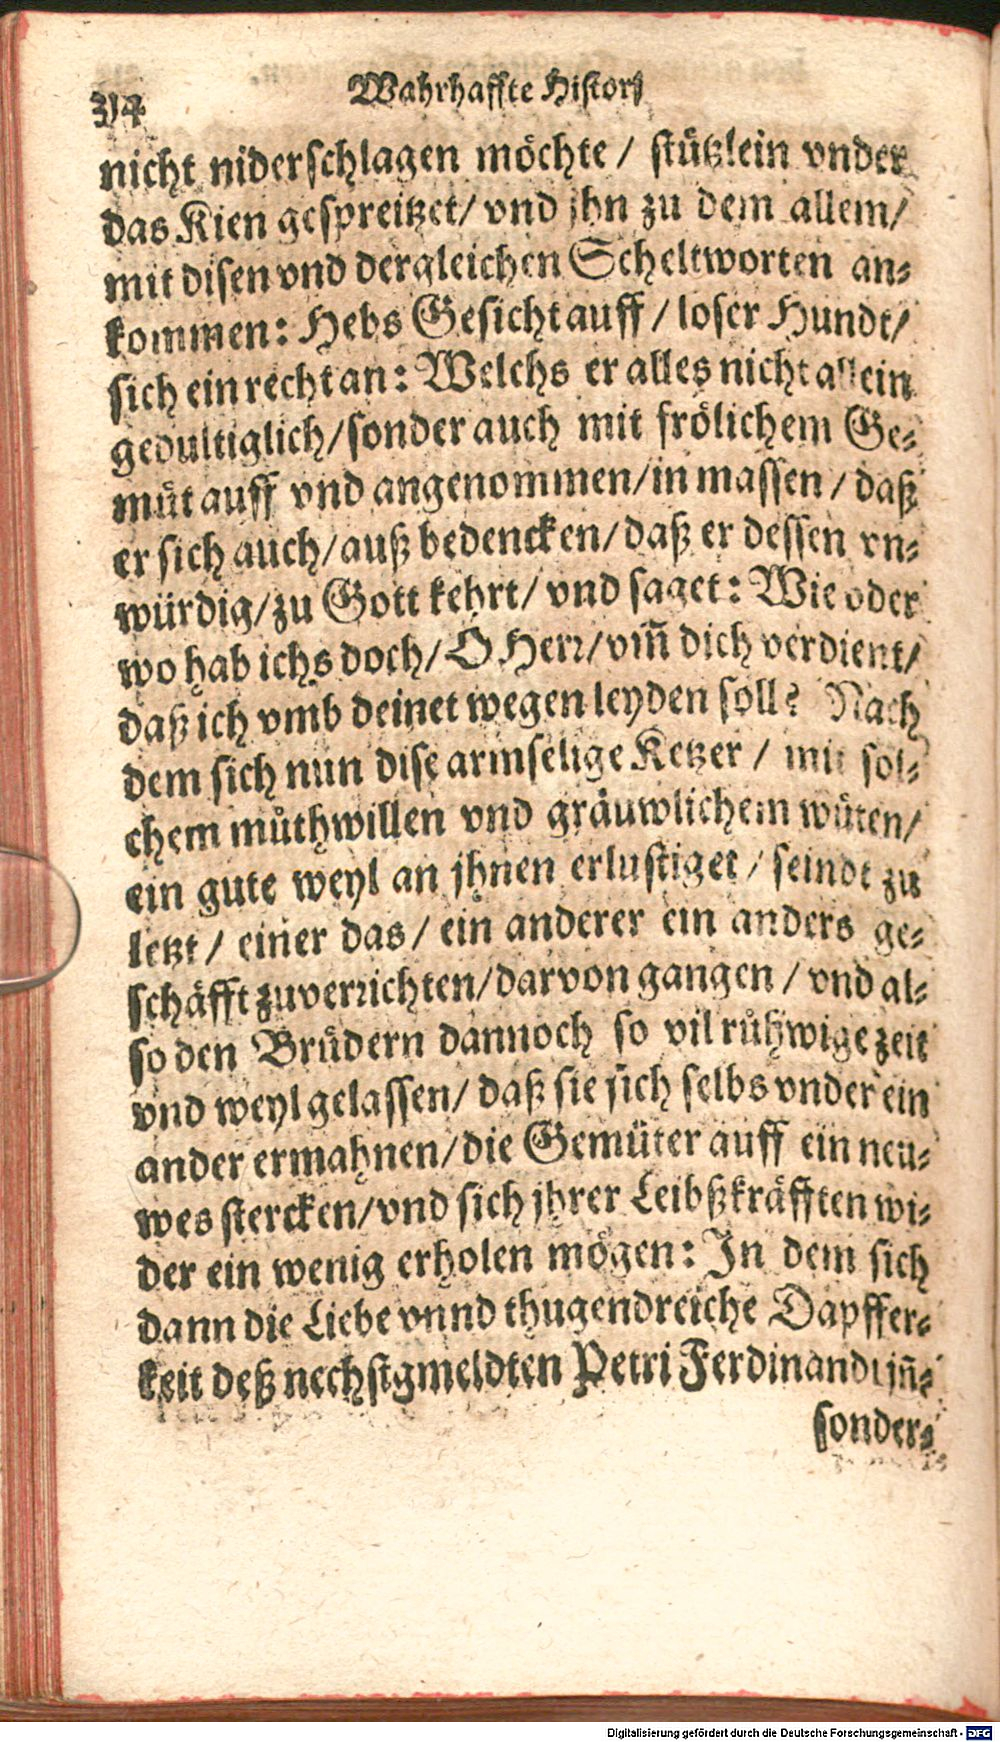 314
Wahrhaffte Historj
nicht niderschlagen möchte / stützlein vnder
das Kien gespreitzet/ vnd jhn zu dem allem/
mit disen vnd dergleichen Scheltworten an⸗
kommen: Hebs Gesicht auff / loser Hundt/
sich ein recht an: Welchs er alles nicht allein
gedultiglich/sonder auch mit frölichem Ge⸗
müt auff vnd angenommen/in massen / daß
er sich auch/auß bedencken/daß er dessen vn⸗
würdig/zu Gott kehrt/ vnd saget: Wie oder
wo hab ichs doch/ O Herr/vm̃ dich verdient/
daß ich vmb deinet wegen leyden soll? Nach
dem sich nun dise armselige Ketzer / mit sol⸗
chem můthwillen vnd gräuwlichem wüten/
ein gute weyl an jhnen erlustiget / seindt zu
letzt / einer das/ ein anderer ein anders ge⸗
schäfft zuverrichten/darvon gangen / vnd al⸗
so den Brüdern dannoch so vil růhwige zeit
vnd weyl gelassen/ daß sie sich selbs vnder ein
ander ermahnen/die Gemüter auff ein neu⸗
wes stercken/vnd sich jhrer Leibßkräfften wi⸗
der ein wenig erholen mögen: In dem sich
dann die Liebe vnnd thugendreiche Dapffer⸗
keit deß nechstgmeldten Petri Ferdinandi jñ⸗
sonder⸗
Digitalisierung gefördert durch die Deutsche Forschungsgemeinschaft - DFG